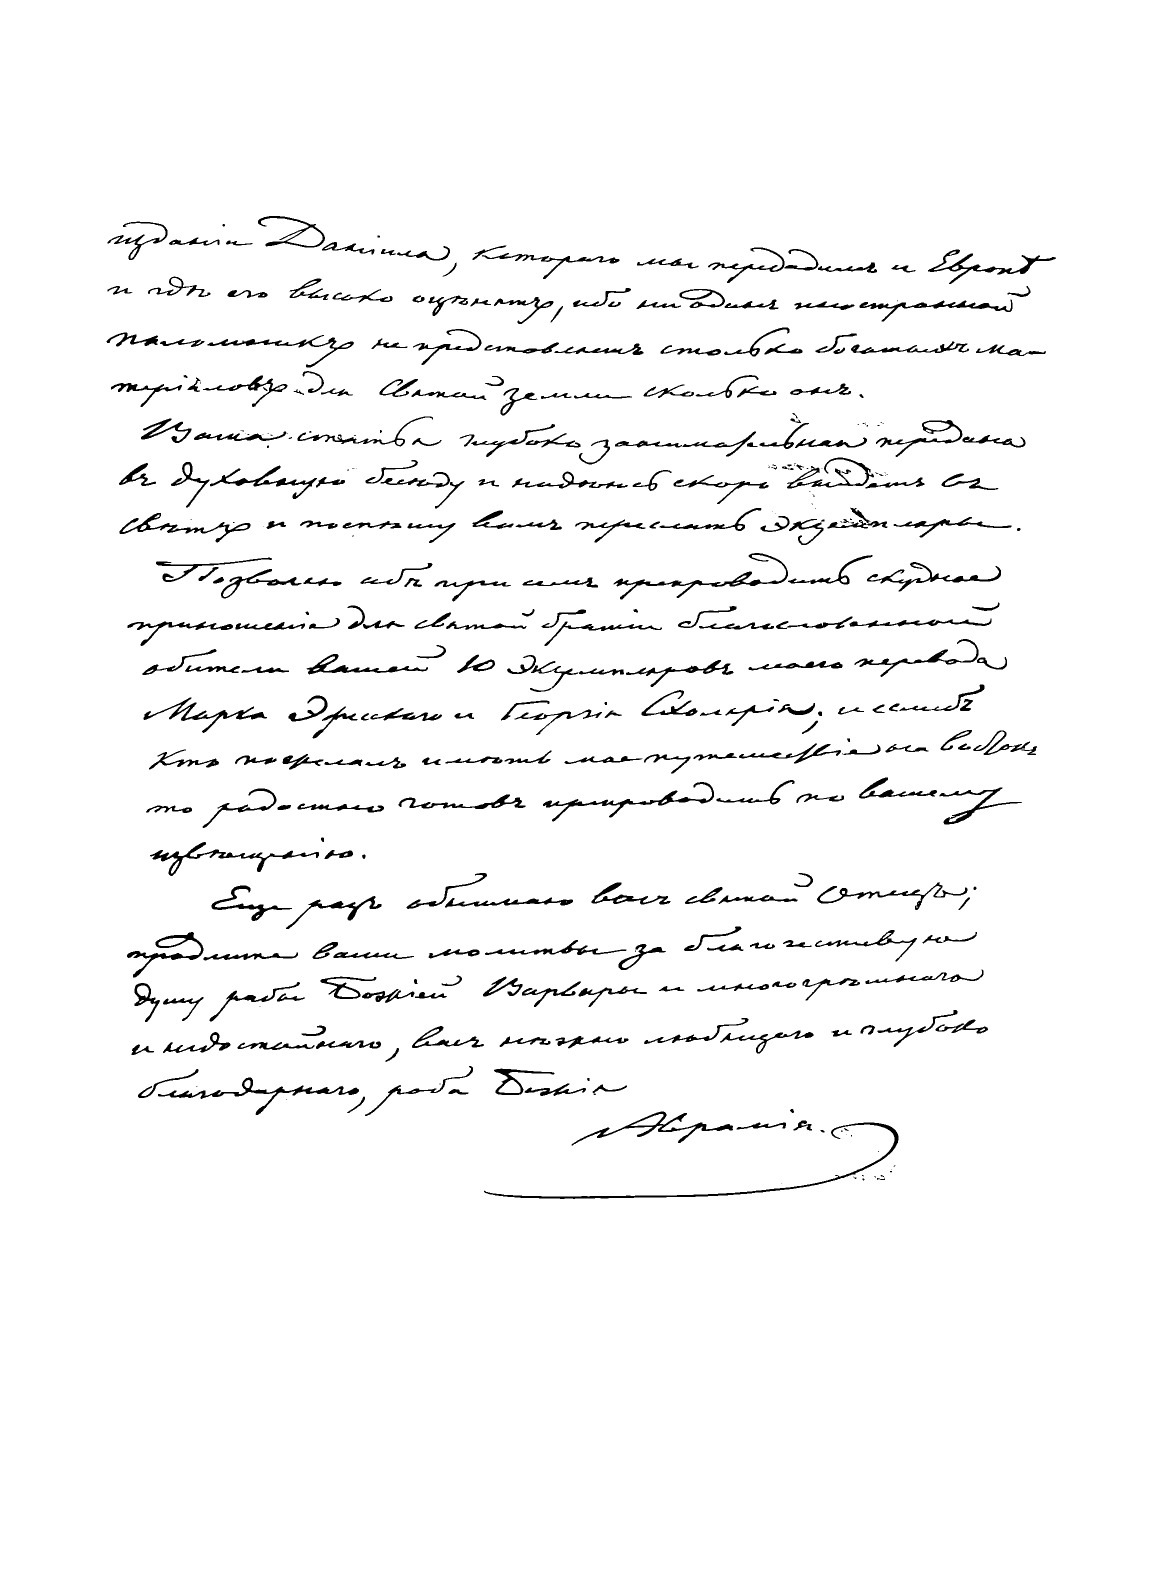 изданіи Даніила, котораго мы передадимъ и Европѣ
и гдѣ его высоко оцѣнятъ, ибо ни одинъ иностранной
паломникъ не представляетъ столько богатыхъ ма-
теріяловъ для Святой земли сколько онъ.
Ваша статья глубоко занимательная передана
въ духовную бесѣду и надѣюсь скоро выйдетъ въ
свѣтъ и поспѣшу вамъ переслать экземпляры.
Позволяю себѣ при семъ препроводить скудное
приношеніе для святой братіи благословенной
обители вашей 10 экземпляровъ моего перевода
Марка Эфесскаго и Георгія Схоларія; и еслибъ
кто пожелалъ имѣть мое путешествіе на востокъ
то радостно готовъ препроводить по вашему
извѣщенію.
Еще разъ обнимаю васъ святой Отецъ;
продлите ваши молитвы за благочестивую
душу рабы Божіей Варвары и многогрѣшнаго
и недостойнаго, васъ нѣжно любящаго и глубоко
благодарнаго, раба Божія
Аврамія.